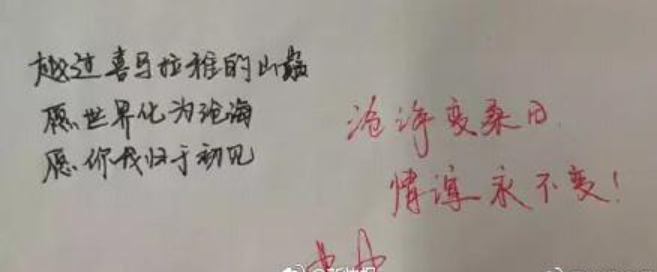 越过喜马拉雅的山巅
愿世界化为沧海
愿你我归于初见
沧海变桑田
情谊永不变!